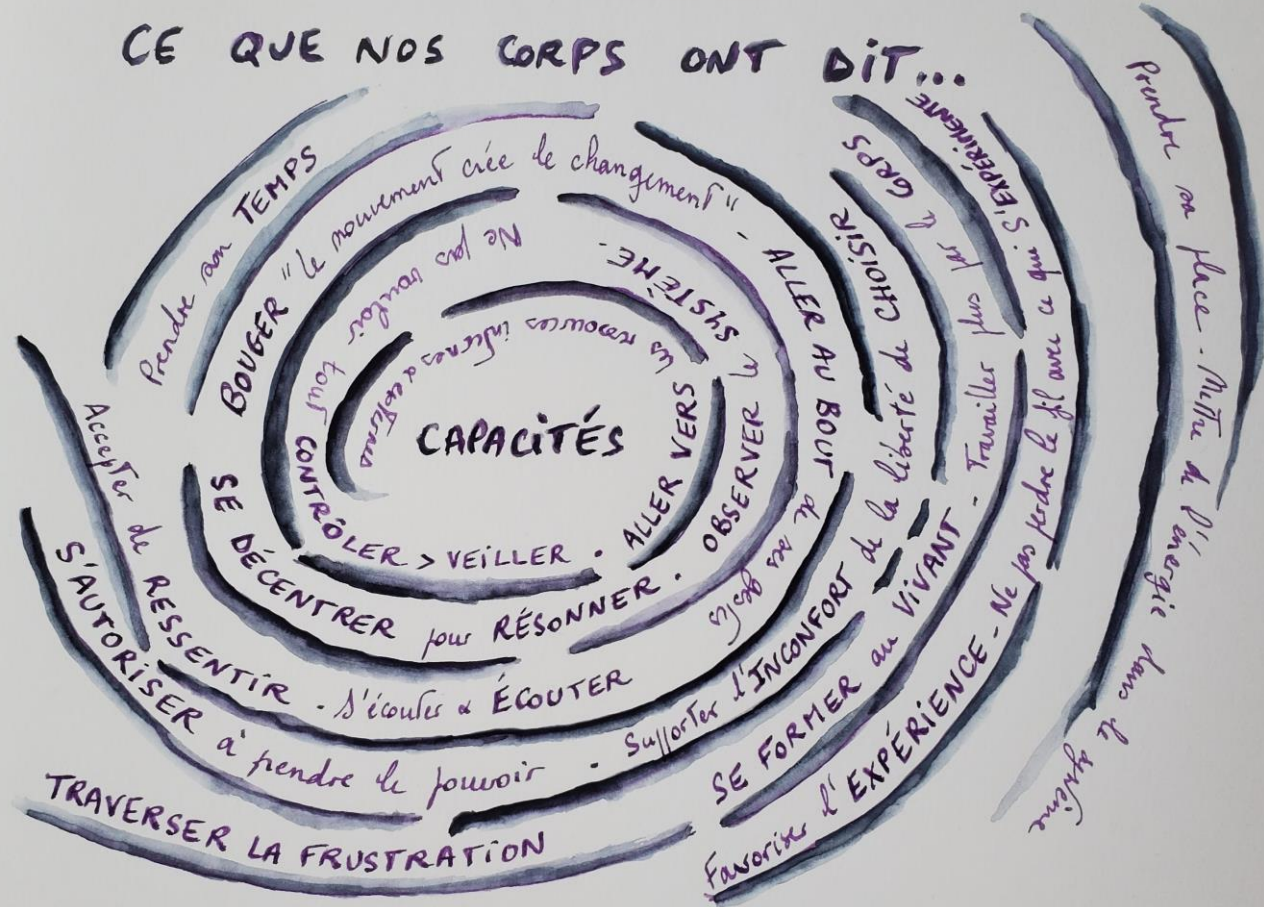 CE QUE NOS CORPS ONT DIT...
CAPACITÉS
ALLER VERS
les ressources internes & externes
Ne pas vouloir tout CONTRÔLER > VEILLER .
OBSERVER en SYSTÈME.
SE DÉCENTRER pour RÉSONNER .
BOUGER "le mouvement crée le changement" - ALLER AU BOUT de ses gestes
Prendre son TEMPS
Accepter de RESSENTIR . S'écouter & ÉCOUTER
S'AUTORISER à prendre le pouvoir .
Supporter l'INCONFORT de la liberté de CHOISIR
TRAVERSER LA FRUSTRATION
SE FORMER au VIVANT - Travailler plus par le CORPS
Favoriser l'EXPÉRIENCE - Ne pas perdre le fil avec ce qui S'EXPÉRIMENTE
Prendre sa place - Mettre de l'énergie dans le système